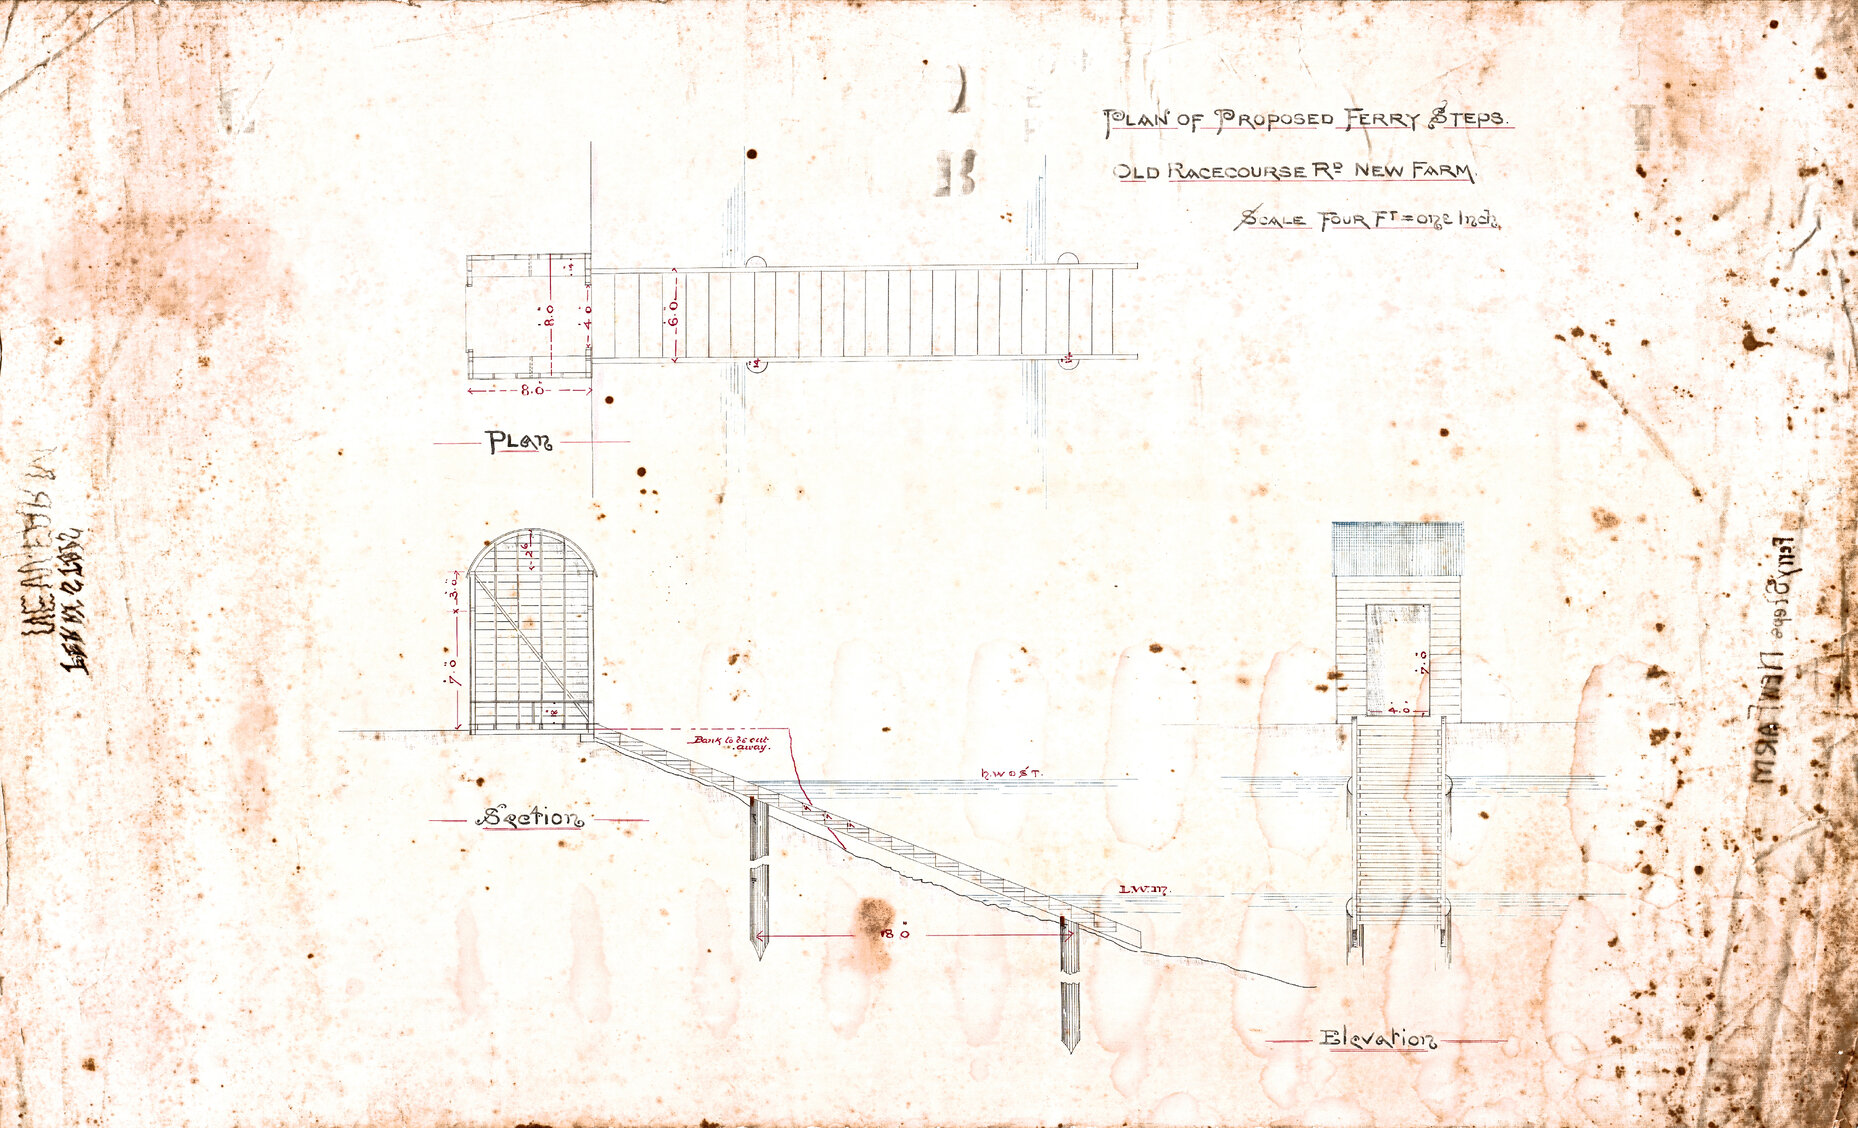 PLAN OF PROPOSED FERRY STEPS.
OLD RACECOURSE RD NEW FARM.
SCALE FOUR FT = ONE INCH,
8.0
4.0
6.0
14
14
8.0
PLAN
2.6
3.0
7.0
18
Bank to be cut
away.
H.W.O.S.T.
7.0
4.0
Section
L.W.M.
18.0
Elevation
Ferry Steps NEW FARM